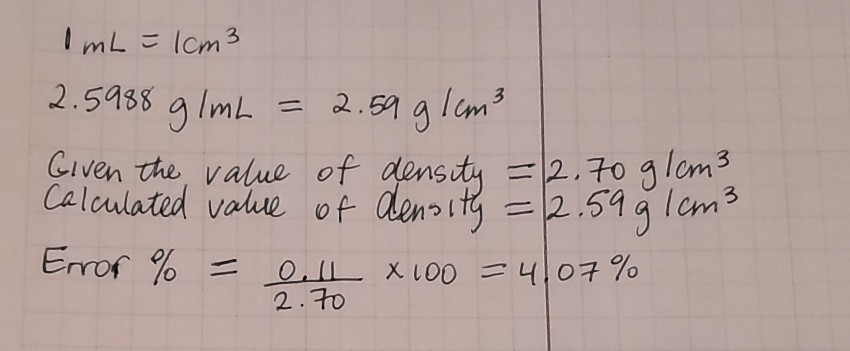 1 mL = 1cm³
2.5988 g/mL = 2.59 g/cm³
Given the value of density = 2.70 g/cm³
Calculated value of density = 2.59 g/cm³
Error % = 0.11/2.70 × 100 = 4.07%